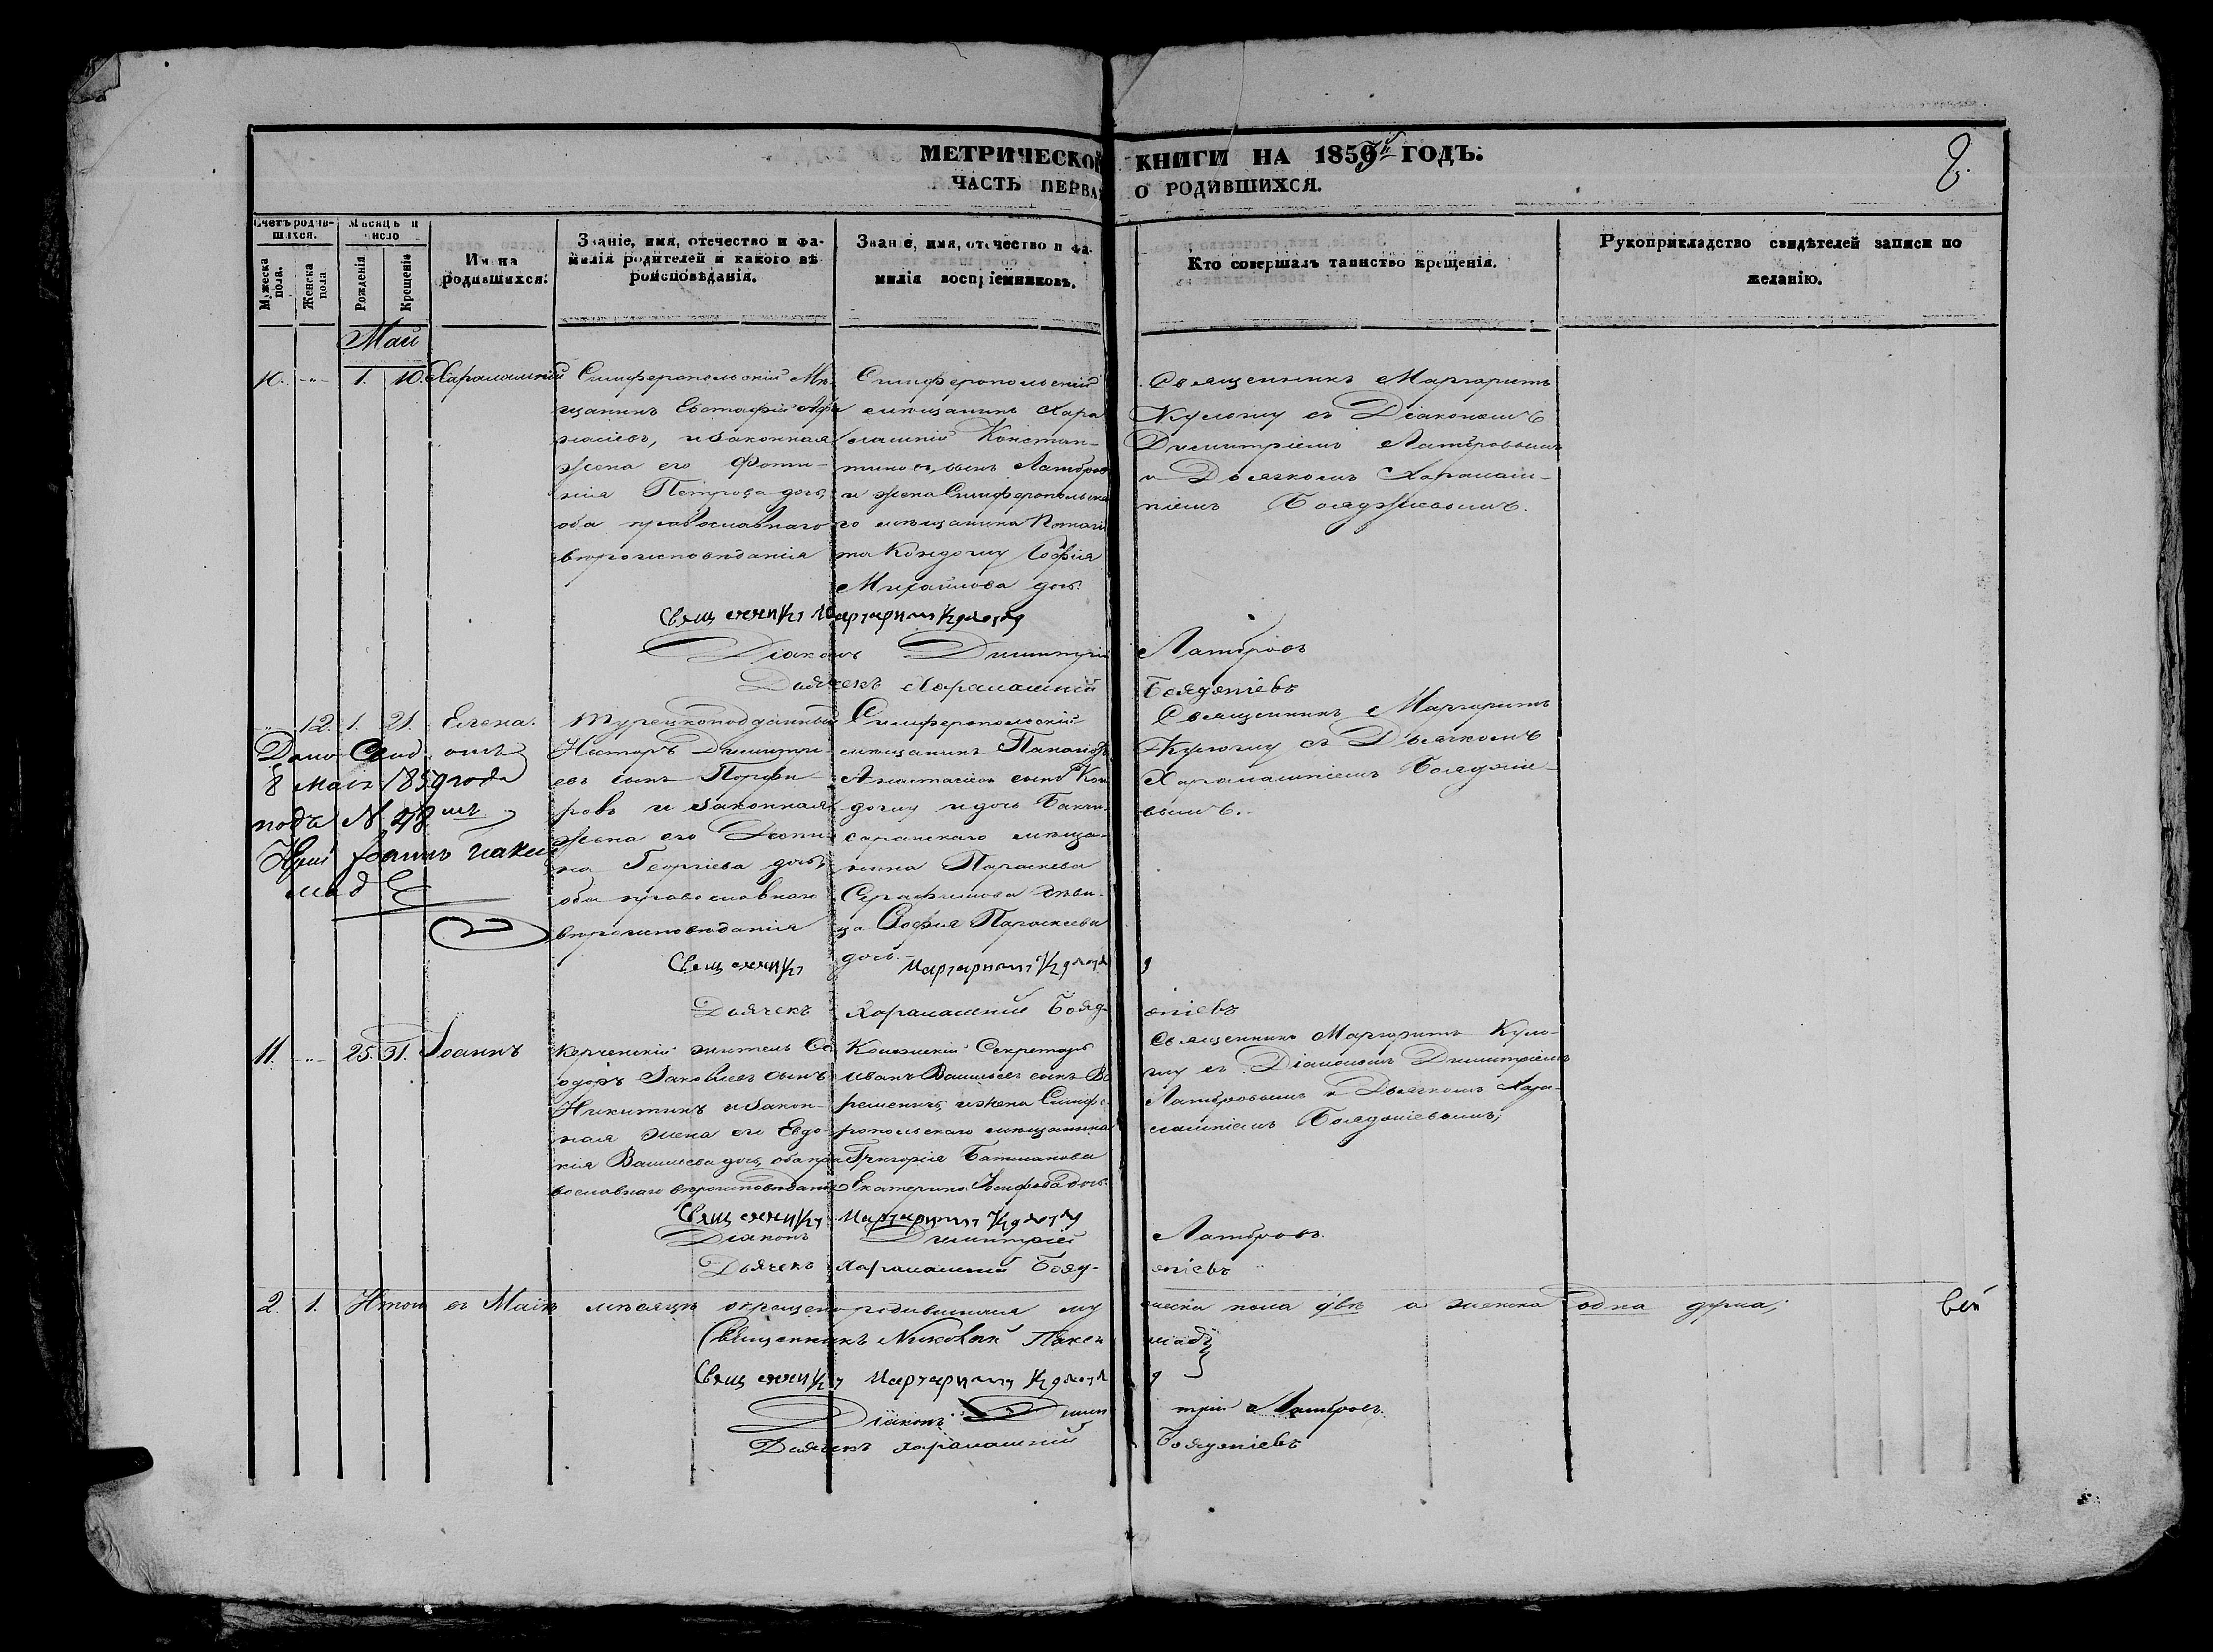 МЕТРИЧЕСКОЙ КНИГИ НА 1859й ГОДЪ.
8.
ЧАСТЬ ПЕРВАЯ О РОДИВШИХСЯ.
Счетъ родив-
шихся.
Мужеска пола.
Женска пола
Мѣсяцъ и число
Рожденія
Крещенія
Имена
родившихся.
Званіе, имя, отечество и фа-
милія родителей и какого вѣ-
роисповѣданія.
Званіе, имя, отечество и фа-
милія воспріемниковъ.
Кто совершалъ таинство крещенія.
Рукоприкладство свидѣтелей записи по
желанію.
Май
10. -"- 1. 10. Харалампій
Симферопольскій Мѣ-
щанинъ Евстафій
, и законная
жена его Фоти-
нія Петрова дочь,
оба православнаго
вѣроисповѣданія
Симферопольскій
мѣщанинъ Хара
лампій Констан-
тиновъ, сынъ Ламбров
и жена Симферопольска
го мѣщанина
София
Михайлова дочь.
Священникъ Маргаритъ
Кулогму съ Діакономъ
Димитріемъ Ламбровымъ
и Дьячкомъ Харалам-
піемъ Бояджіевымъ.
Священникъ Маргаритъ Кулогму
Діаконъ Димитрій Ламбровъ
Дьячекъ Харалампій Бояджіевъ
12. 1. 21. Елена.
Дано Свид. отъ
8 Мая 1859 года
подъ № 28мъ
Іоаннъ
Турецкоподданный
Несторъ Димитрі-
евъ сынъ Порфи-
ровъ и законная
жена его
на Георгіева дочь,
оба православнаго
вѣроисповѣданія
Симферопольскій
мѣщанинъ
Анастасіевъ сынъ Кон
догму и дочь Бахчи-
сарайскаго мѣща-
нина Параскева
Серафимова дѣви-
ца София Параскева
дочь.
Священникъ Маргаритъ
Кулогму съ Дьячкомъ
Харалампіемъ Бояджіе-
вымъ.
Священникъ Маргаритъ Кулогму
Дьячекъ Харалампій Бояджіевъ
11. -"- 25. 31. Іоаннъ
Керченскій житель Ѳе
одоръ Яковлевъ сынъ
Никитинъ и закон-
ная жена его Евдо-
кія Васильева дочь, оба пра
вославнаго вѣроисповѣданія
Колежскій Секретарь
Иванъ Васильевъ сынъ Ве
ременичъ, и жена Симфе
ропольскаго мѣщанина
Григорія Батманова
Екатерина дочь.
Священникъ Маргаритъ Куло-
гму съ Діакономъ Димитріемъ
Ламбровымъ и Дьячкомъ Хара-
лампіемъ Бояджіевымъ;
Священникъ Маргаритъ Кулогму
Діаконъ Димитрій Ламбровъ.
Дьячекъ Харалампій Бояджіевъ
2. 1. Итого въ Маѣ мѣсяцѣ окрещено родившихся мужеска пола двѣ а женска одна душа;
Священникъ Николай
Священникъ Маргаритъ Кулогму
Діаконъ Димитрій Ламбровъ.
Дьячекъ Харалампій Бояджіевъ